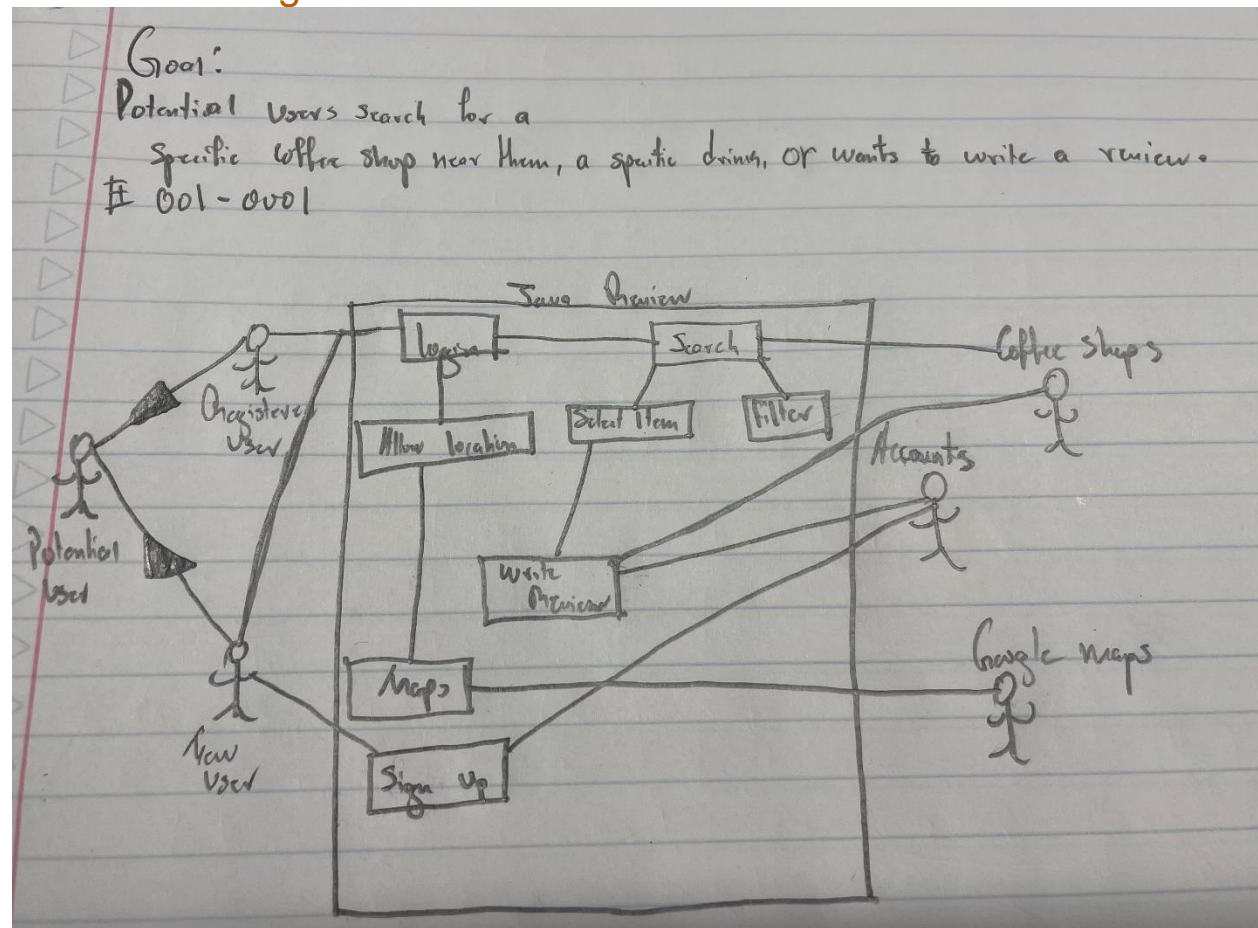 Goal:
Potential users search for a
specific coffee shop near them, a specific drink, or wants to write a review.
001-0001
Java Review
Login
Search
Coffee shops
Registered
User
Allow location
Select Item
Filter
Accounts
Potential
User
Write
Review
Maps
Google maps
New
User
Sign Up